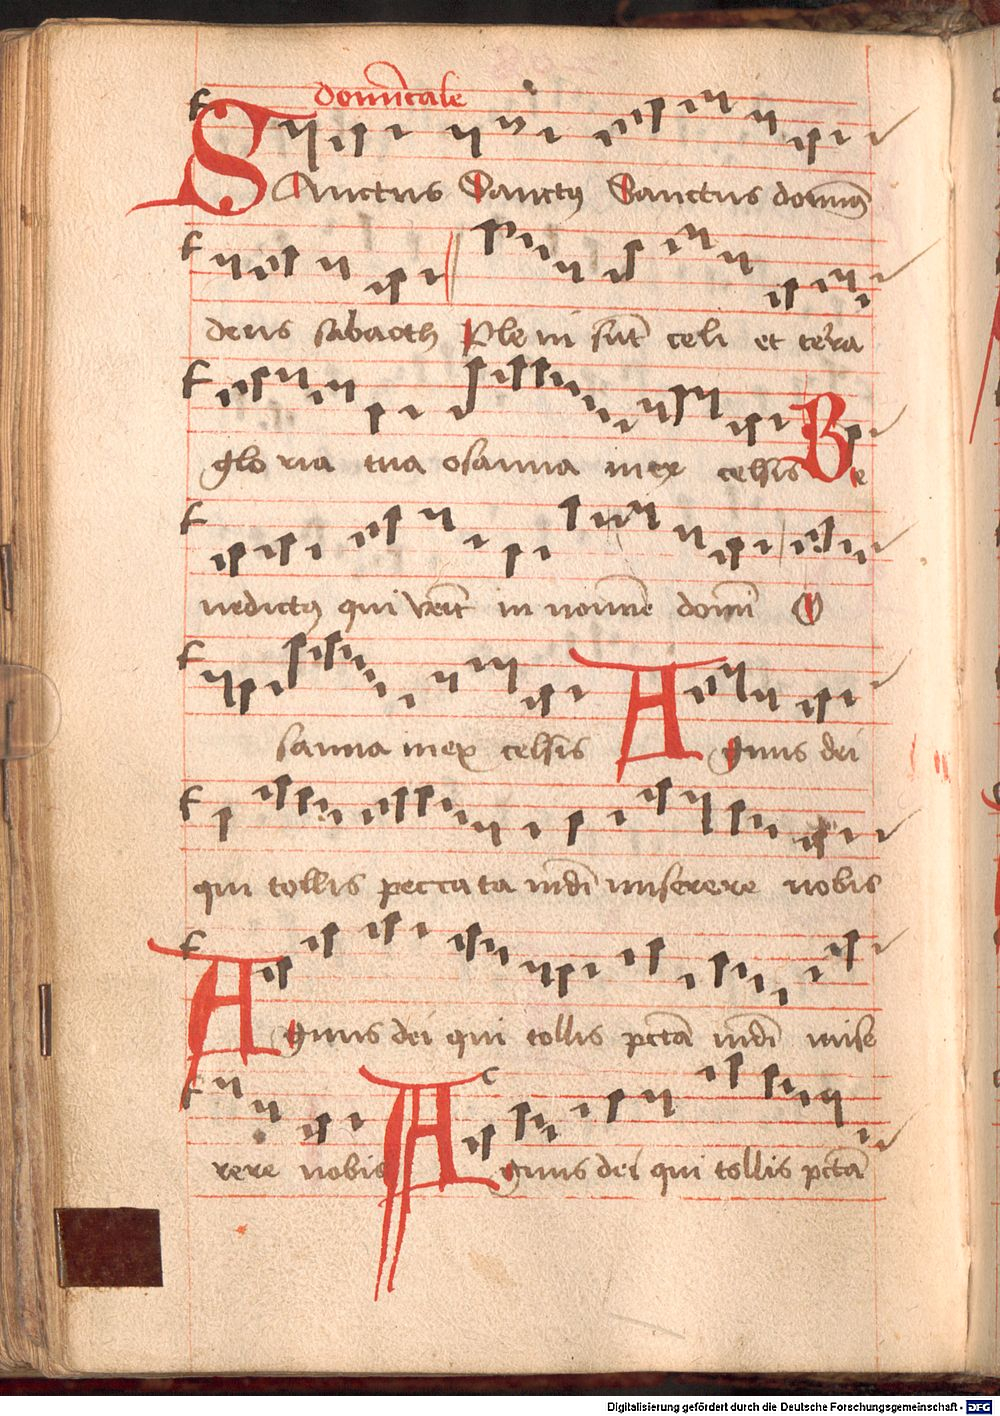 domīcale
SAnctus Sanctꝰ Sanctus dominꝰ
deus sabaoth Pleni sūt celi et terra
gloria tua osanna inex celsis Be
nedictꝰ qui venit in nomine domī O
sanna inex celsis Agnus dei
qui tollis peccata mūdī miserere nobis
Agnus dei qui tollis pctā mūdī mise
rere nobis Agnus dei qui tollis pctā
Digitalisierung gefördert durch die Deutsche Forschungsgemeinschaft - DFG